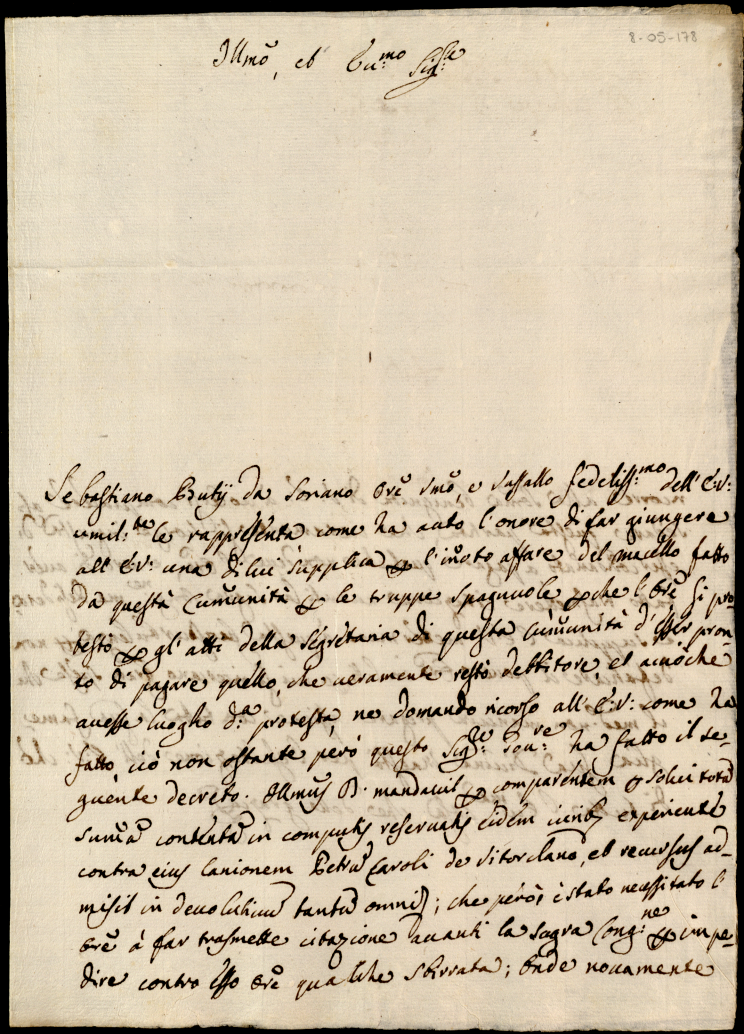 8-05-178
Illmo, et Ecc.mo Sig.re
Sebastiano Butij da Soriano Ore vmo, e vassallo fedeliss.mo dell'E: V:
umil.te le rappresenta come ha auto l'onore di far giungere
all'E: V: una di lui supplica p l'imoto affare del macello fatto
da questa Comunità p le truppe spagnuole p che l'Ore si pro-
testò p gl'atti della segretaria di questa comunità d'esser pron-
to di pagare quello, che veramente restò debbitore, et acciò che
avesse luogho d.a protesta, ne domandò ricorso all'E: V: come ha
fatto, ciò non ostante però questo Sig.re ha fatto il se-
guente decreto. Illmus D. mandavit p comparentem solvi totã
summã contentã in computis reservatis eidem iuribs experiendi
contra eius Lanionem Petrũ Caroli de Vitorclano, et recursus ad-
misit in devolutivũ tantũ omni; che però è stato necessitato l'
Ore à far trasmettere citazione avanti la sagra Cong.ne p impe-
dire contro esso Ore qualche sbirrata; Onde novamente